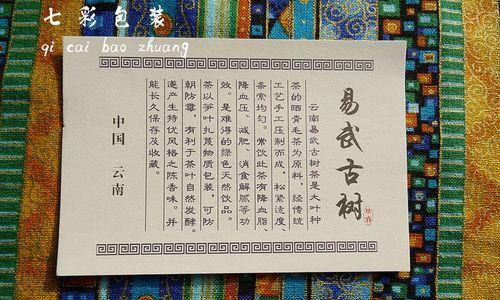 七彩包装
qi cai bao zhuang
易武古树
早春
云南易武古树茶是大叶种
茶的晒青毛茶为原料，经传统
工艺手工压制而成，松紧适度、
条索均匀。常饮此茶有降血脂、
降血压、减肥、消食解腻等功
效。是难得的绿色天然饮品。
茶以笋叶扎蔑物质包装，可防
朝防霉，有利于茶叶自然发酵。
遂产生持优风格之陈香味。并
能长久保存及收藏。
中国 云南